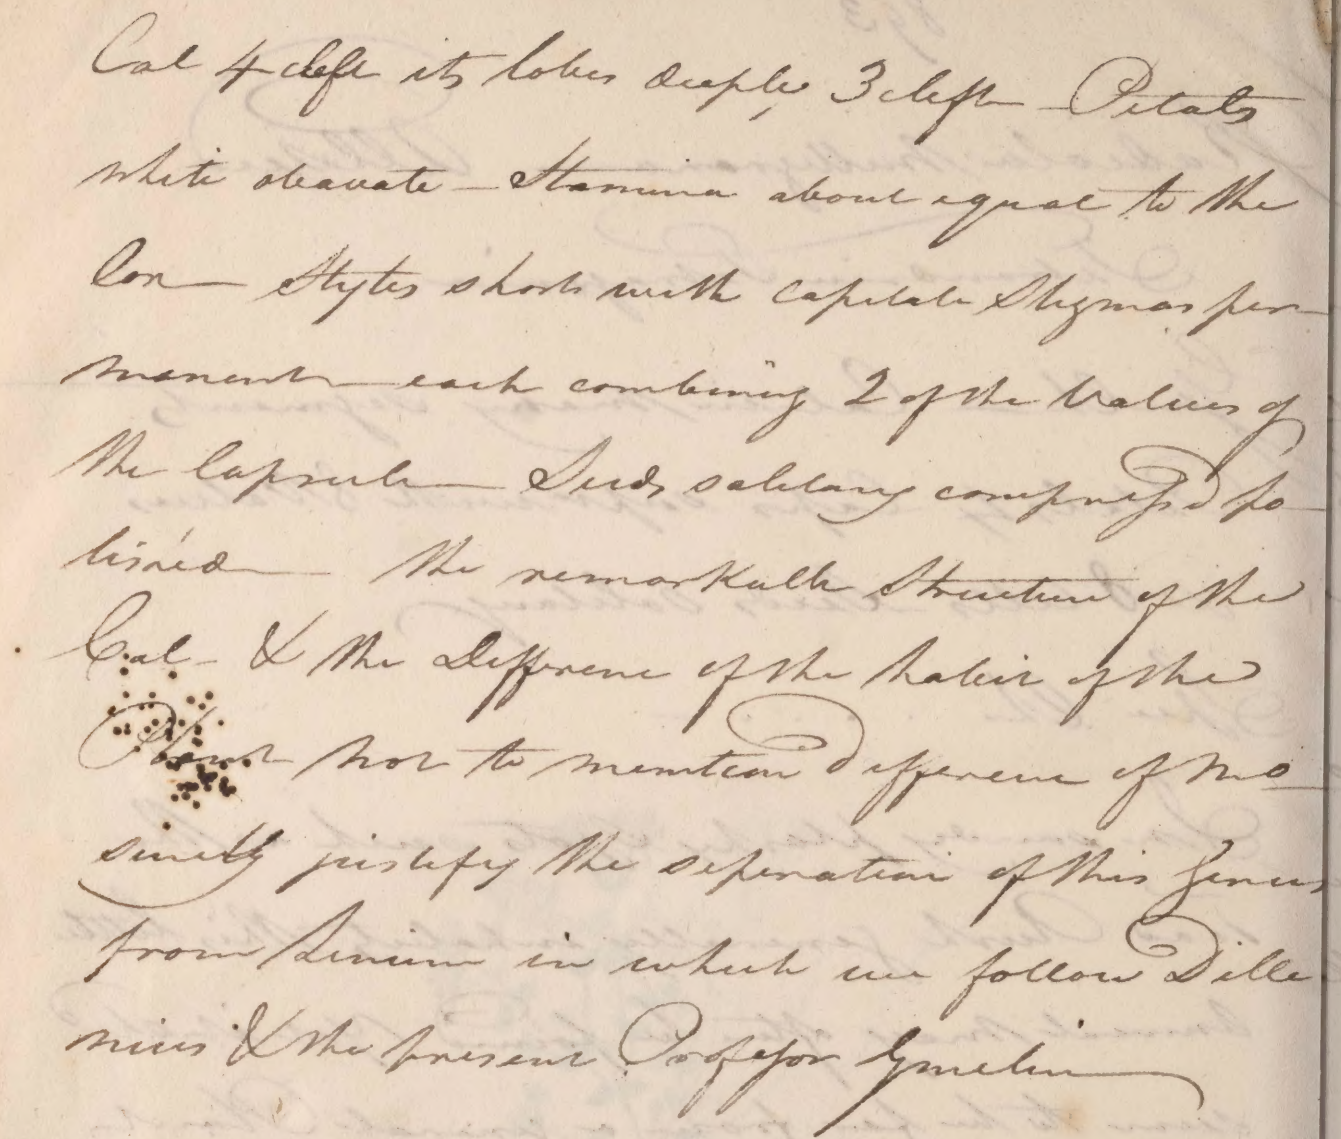 Cal 4 cleft its lobes deeply 3 cleft — Petals
white obavate — Stamina about equal to the
Cor — Styles short with capitate Stigmas per-
manent — each combining 2 of the Valves of
the Capsule — Seeds solitary compressed po-
lished — the remarkable Structure of the
Cal — & the Difference of the habit of the
Plant not to mention Difference of No
surely justify the separation of this Genus
from Linum in which we follow Dille
nius & the present Professor Gmelin